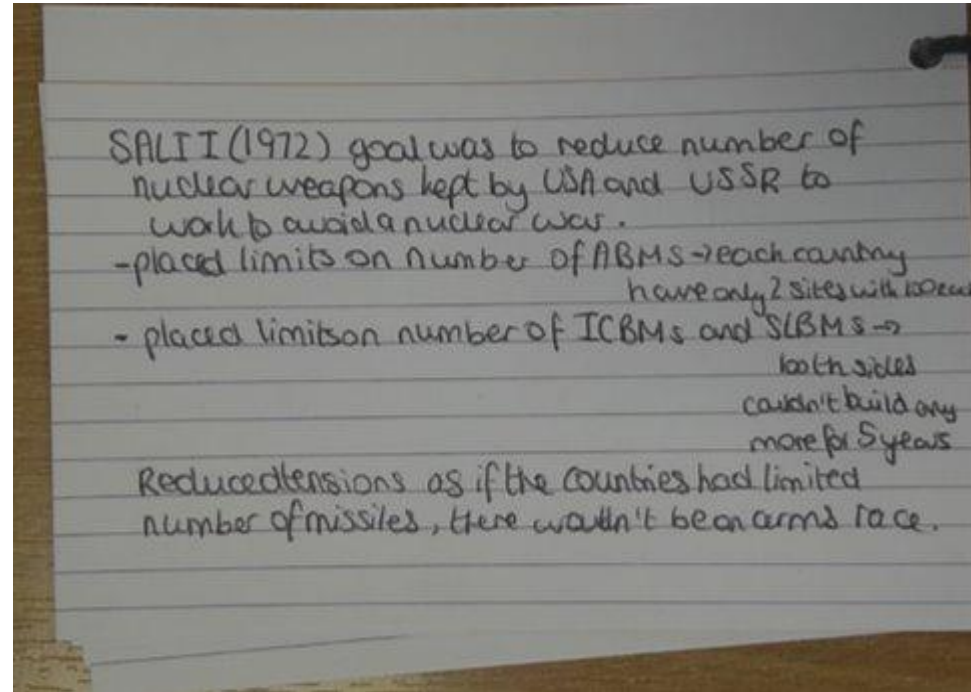 SALT I (1972) goal was to reduce number of
nuclear weapons kept by USA and USSR to
work to avoid a nuclear war.
-placed limits on number of ABMS→each country
have only 2 sites with 100 each
- placed limits on number of ICBMs and SLBMs→
both sides
couldn't build any
more for 5 years
Reduced tensions as if the countries had limited
number of missiles, there wouldn't be an arms race.